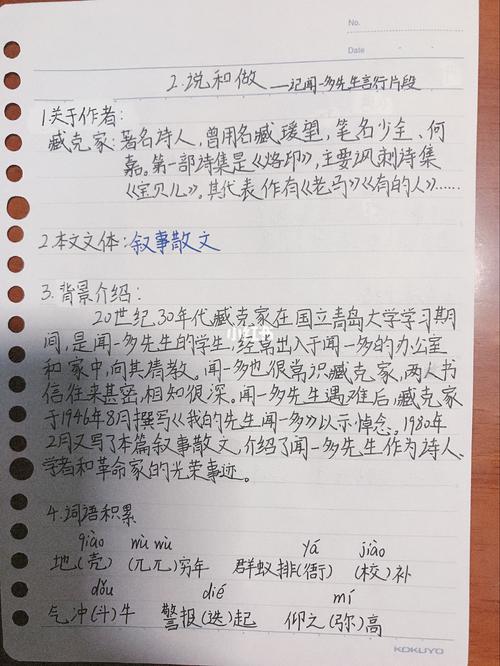 No.
Date
2.说和做——记闻一多先生言行片段
1关于作者:
臧克家:著名诗人,曾用名臧瑗望,笔名少全、何
嘉。第一部诗集是《烙印》,主要讽刺诗集
《宝贝儿》。其代表作有《老马》《有的人》……
2.本文文体:叙事散文
3.背景介绍:
20世纪30年代臧克家在国立青岛大学学习期
间,是闻一多先生的学生,经常出入于闻一多的办公室
和家中,向其请教。闻一多也很常识臧克家,两人书
信往来甚密,相知很深。闻一多先生遇难后,臧克家
于1946年8月撰写《我的先生闻一多》以示悼念。1980年
2月又写了本篇叙事散文,介绍了闻一多先生作为诗人、
学者和革命家的光荣事迹。
小红书
4.词语积累
qiào wù wù yá jiào
地(壳) (兀兀)穷年 群蚁排(衙) (校)补
dǒu dié mí
气冲(斗)牛 警报(迭)起 仰之(弥)高
KOKUYO